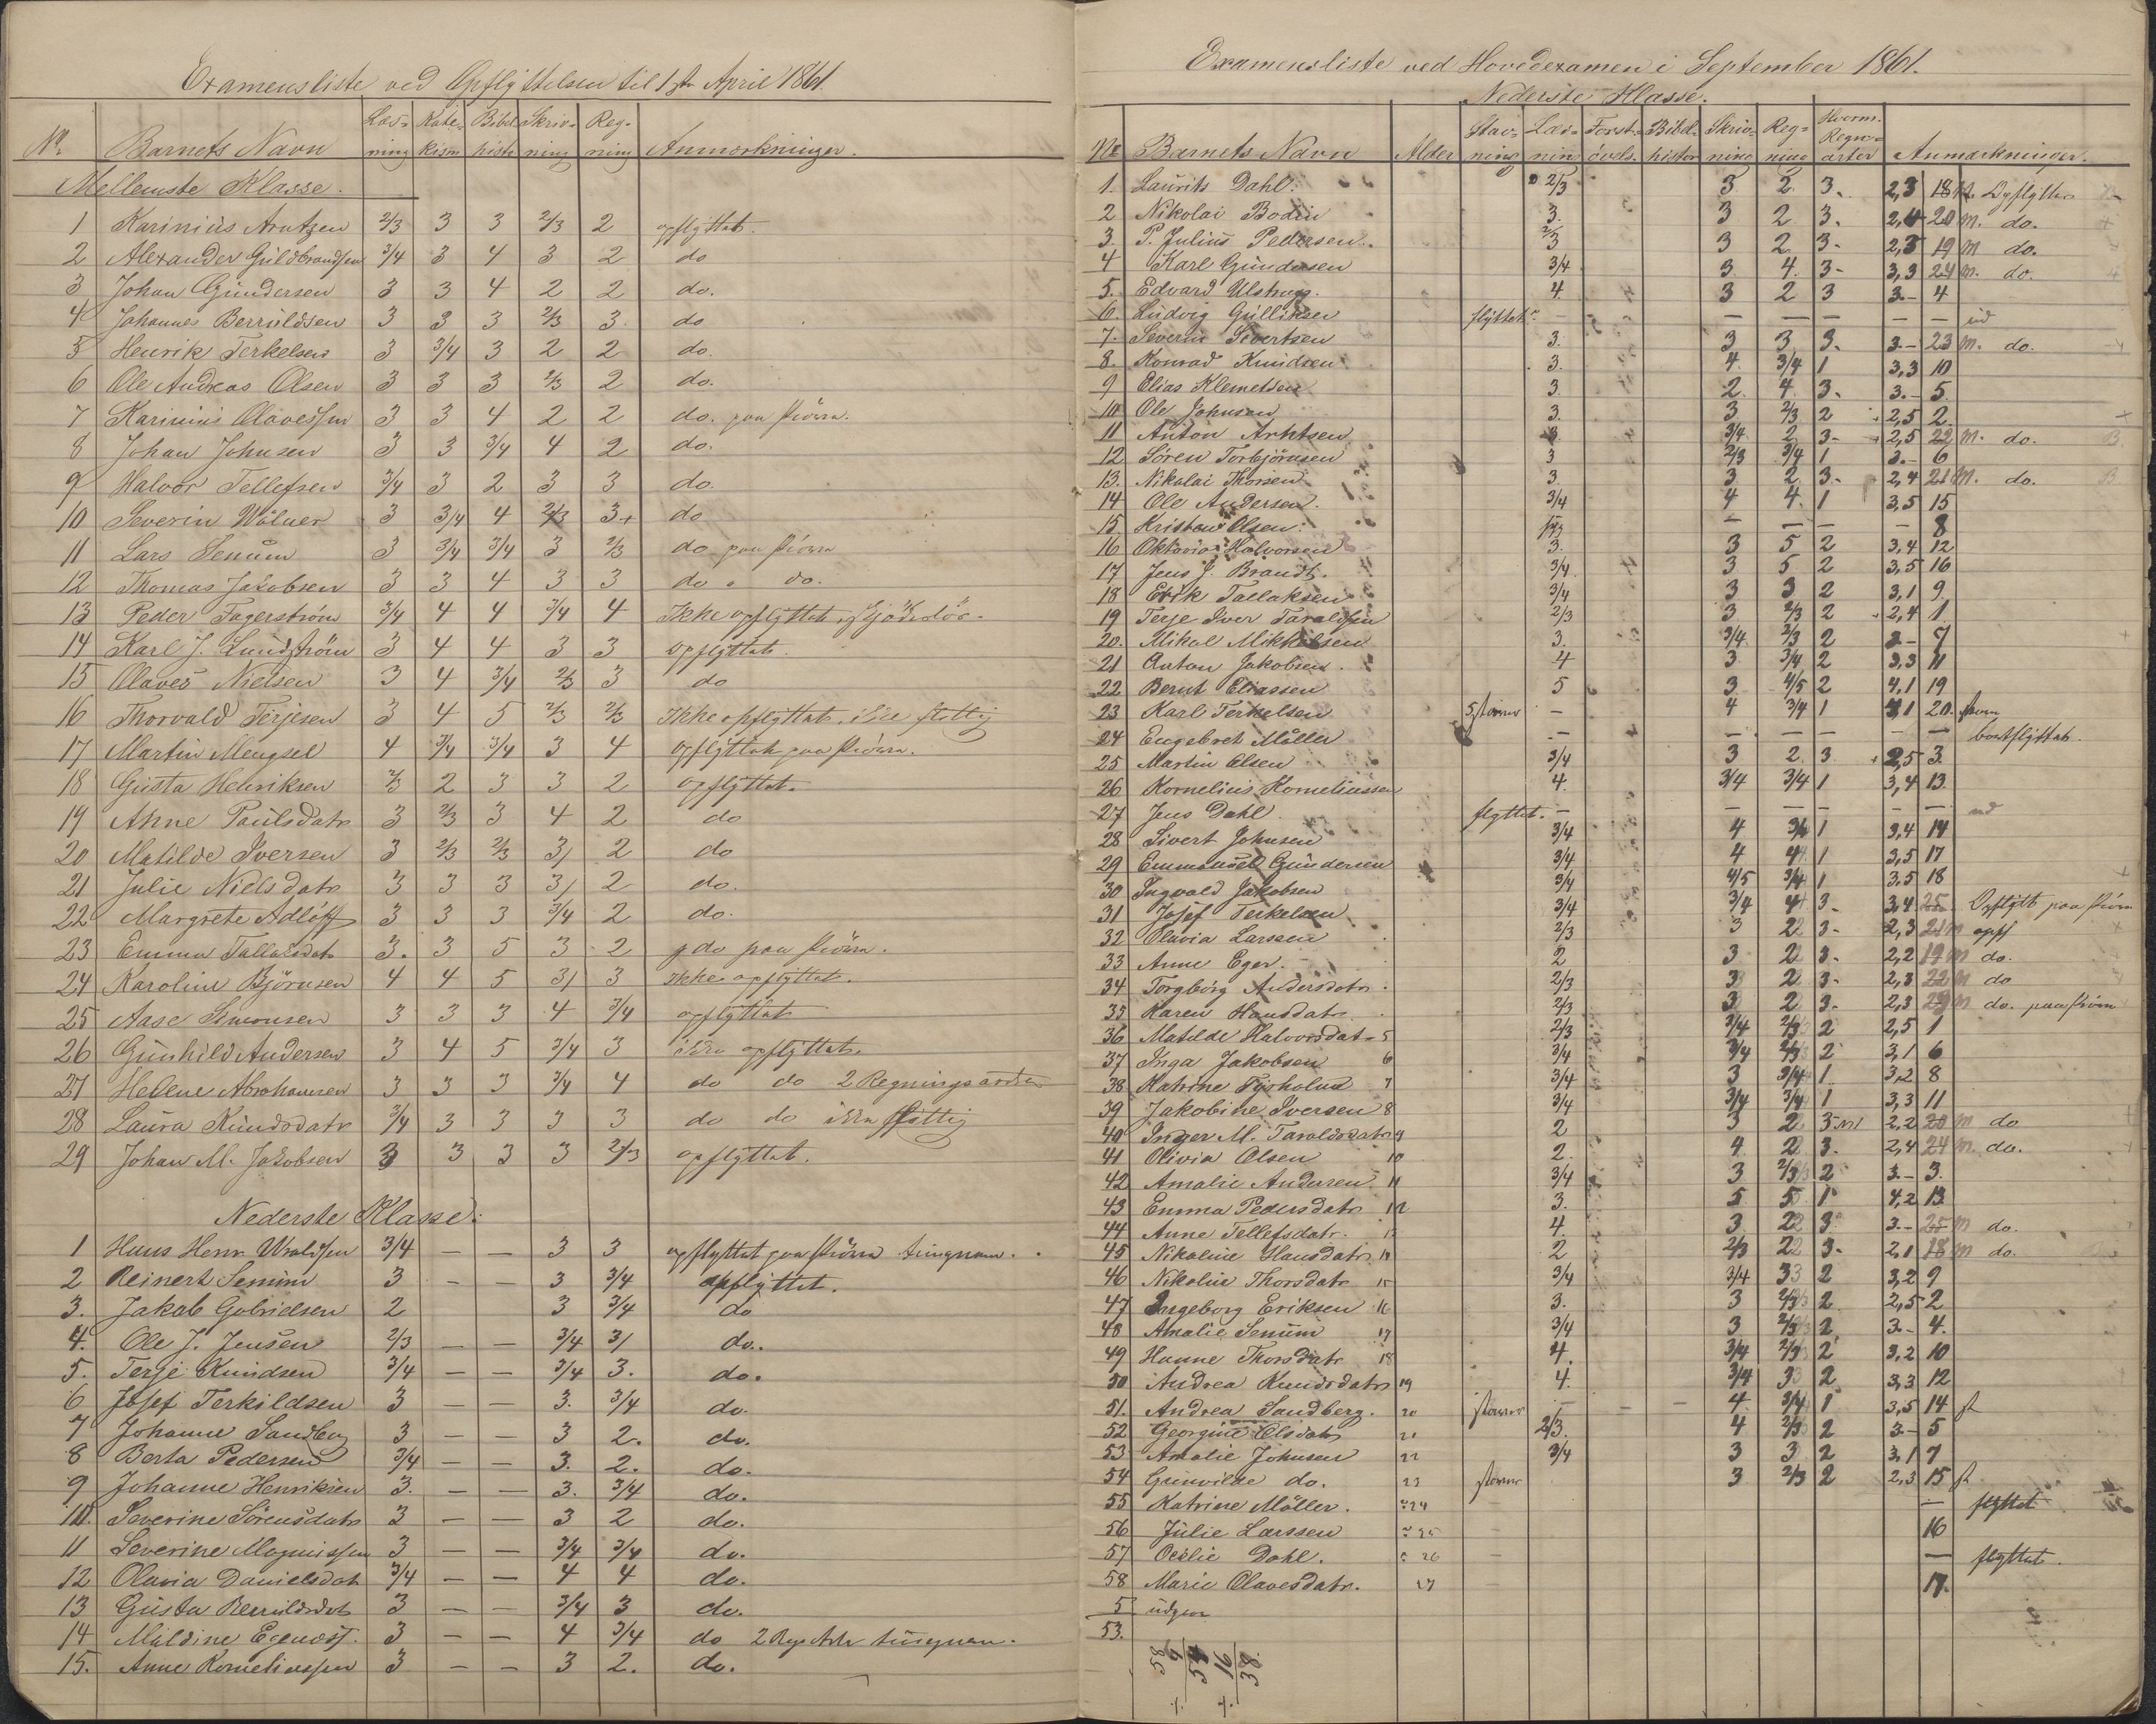 Examensliste ved Opflyttelsen til 1ste April 1861.
No. Barnets Navn Læs-ning Kate-kism Bibel histo Skriv-ning Reg-ning Anmærkninger.
Mellemste Klasse.
1 Karinius Arntzen 2/3 3 3 2/3 2 opflyttet.
2 Alexander Guldbrandsen 3/4 3 4 3 2 do
3 Johan Gundersen 3 3 4 2 2 do.
4 Johannes Berruldsen 3 3 3 2/3 3 do
5 Henrik Terkelsen 3 3/4 3 2 2 do.
6 Ole Andreas Olsen 3 3 3 2/3 2 do.
7 Karinius Olavessen 3 3 4 2 2 do. paa Prøve.
8 Johan Johnsen 3 3 3/4 4 2 do.
9 Halvor Tellefsen 3/4 3 2 3 3 do.
10 Severin Wølner 3 3/4 4 2/3 3+ do
11 Lars Senum 3 3/4 3/4 3 2/3 do paa Prøve
12 Thomas Jakobsen 3 3 4 3 3 do " do.
13 Peder Fagerstrøm 3/4 4 4 3/4 4 Ikke opflyttet,
14 Karl J. Lundstrøm 3 4 4 3 3 opflyttet.
15 Olaves Nielsen 3 4 3/4 2/3 3 do
16 Thorvald Terjesen 3 4 5 2/3 2/3 Ikke opflyttet, ikke flittig
17 Martin Mengsel 4 3/4 3/4 3 4 opflyttet paa Prøve.
18 Gusta Henriksen 2/3 2 3 3 2 opflyttet.
19 Anne Paulsdatr 3 2/3 3 4 2 do
20 Matilde Iversen 3 2/3 2/3 3/ 2 do
21 Julie Nielsdatr 3 3 3 3/ 2 do.
22 Margrete Adløff 3 3 3 3/4 2 do.
23 Emma Tallaksdatr 3. 3 5 3 2 do paa Prøve.
24 Karoline Bjørnsen 4 4 5 3/ 3 Ikke opflyttet.
25 Aase Simonsen 3 3 3 4 3/4 opflyttet
26 Gunhild Andersen 3 4 5 3/4 3 ikke opflyttet.
27 Helene Abrahamsen 3 3 3 3/4 4 do do 2 Regningsarter
28 Laura Knudsdatr 3/4 3 3 3 3 do do ikke flittig
29 Johan M. Jakobsen 3 3 3 3 2/3 opflyttet.
Nederste Klasse.
1 Hans Henr. Wroldsen 3/4 — — 3 3 opflyttet paa Prøve
2 Reinert Senum 3 - — 3 3/4 opflyttet.
3. Jakob Gabrielsen 2 3 3/4 do
4. Ole J. Jensen 2/3 — — 3/4 3/ do..
5. Terje Knudsen 3/4 — — 3/4 3. do.
6 Josef Terkildsen 3 — — 3. 3/4 do.
7 Johanne Sandberg 3 — — 3 2. do.
8 Berta Pedersen 3/4 — — 3. 2. do.
9 Johanne Henriksen 3. — — 3. 3/4 do.
10. Severine Sørensdatr 3 — — 3 2 do.
11 Severine Magnussen 3 — — 3/4 3/4 do.
12 Olavia Danielsdat 3/4 — — 4 4 do.
13 Gusta Berruldsdat 3 — — 3/4 3 do.
14 Maldine 3 — — 4 3/4 do 2
15. Anne Korneliussen 3 — - 3 2. do.
Examensliste ved Hovedexamen i September 1861.
Nederste Klasse.
No Barnets Navn Alder Stav-ning Læs-ning Forst. øvels. Bibel-histor Skriv-ning Reg-ning Hvorm. Regne-arter Anmærkninger.
1. Laurits Dahl. 2/3 3 2. 3. 2,3 18 Opflyttes
2 Nikolai Bodin 3. 3 2 3. 2,4 20 m. do.
3. P. Julius Pedersen. 2/3 3 2 3. 2,3 19 m do.
4 Karl Gundersen 3/4 3 4. 3- 3,3 24 m. do.
5. Edvard Ulstrup. 4. 3 2 3 3.- 4
6. Ludvig Gulliksen flyttet. — — — — — — ud
7. Severin Sivertsen 3. 3 3 3. 3.- 23 m. do.
8. Konrad Knudsen 3. 4. 3/4 1 3,3 10
9 Elias Klemetsen 3. 2. 4. 3. 3.- 5.
10. Ole Johnsen 3. 3 2/3 2 2,5 2.
11 Anton Arntsen 3. 3/4 2 3- 2,5 22 m. do.
12 Søren Torbjørnsen 3 2/3 3/4 1 3.- 6
13. Nikolai Thorsen 3 3 2 3. 2,4 21 m. do.
14 Ole Andersen. 3/4 4 4. 1 3,5 15
15. Kristen Olsen. — — — — 8
16 Oktavia Halvorsen 3. 3 5 2 3,4 12
17 Jens J. Brandt. 3/4 3 5 2 3,5 16
18 Erik Tallaksen 3/4 3 3 2 3,1 9.
19 Terje Iver Taraldsen 2/3 3 2/3 2 2,4 1
20. Mikal Mikkelsen 3. 3/4 2/3 2 3- 7
21 Anton Jakobsen. 4 3 3/4 2 3,3 11
22 Bernt Eliassen 5 3 4/5 2 4,1 19
23 Karl Terkelsen 5, staver — 4 3/4 1 4,1 20.
24 Engebret Møller — — — — — — bortflyttet.
25 Martin Olsen 3/4 3 2. 3 2,5 3.
26 Kornelius Korneliussen 4. 3/4 3/4 1 3,4 13.
27 Jens Dahl flyttet. — — — — — — ud
28 Sivert Johnsen 3/4 4 3/4 1 3,4 14
29 Emmanuel Gundersen 3/4 4 4 1 3,5 17
30 Ingvald Jakobsen 3/4 4/5 3/4 1 3,5 18
31 Josef Terkelsen 3/4 3/4 4 3. 3,4 25. Opflytt paa Prøve
32 Olavia Larssen 2/3 3 2 3- 2,3 21 m opfl
33 Anne Eger. 2 3 2 3. 2,2 19 m do.
34 Torgborg Andersdatr 2/3 3 2 3. 2,3 22 m do
35 Karen Hansdatr. 2/3 3 2 3. 2,3 23 m do. paa Prøve
36 Matilde Halvorsdat 5 2/3 3/4 2/3 2 2,5 1
37 Inga Jakobsen 6 3/4 3/4 2/3 2 3,1 6
38 Katrine Fyrholm 7 3/4 3 3/4 1. 3,2 8
39 Jakobine Iversen 8 3/4 3/4 3/4 1 3,3 11
40 Inger M. Taraldsdatr 9 2 3 2 3 2,2 20 m do
41 Olivia Olsen 10 2. 4 2 3. 2,4 24 m. do.
42 Amalie Andersen 11 3/4 3 2/3 2 3.- 3.
43 Emma Pedersdatr 12 3. 5 5 1 4,2 13.
44 Anne Tellefsdatr. 13 4. 3 2 3. 3.- 25 m do.
45 Nikoline Hansdatr. 14 2 2/3 2 3. 2,1 18 m do.
46 Nikoline Thorsdatr 15 3/4 3/4 3 2 3,2 9
47 Ingeborg Eriksen 16 3. 3 2/3 2 2,5 2
48 Amalie Senum 17 3/4 3 2/3 2 3.- 4.
49 Hanne Thorsdatr 18 4. 3/4 2/3 2 3,2 10
50 Andrea Knudsdatr 19 4. 3/4 3 2 3,3 12
51. Andrea Sandberg. 20 staver — - - 4. 3/4 1 3,5 14
52 Georgine Olsdatr 21 2/3. 4 2/3 2 3.- 5
53 Amalie Johnsen 22 3/4 3 3 2 3,1 7
54 Gunvilde do. 23 staver 3 2/3 2 2,3 15
55 Katrine Møller. 24 — flyttet
56 Julie Larssen 25 - 16
57 Ocelie Dahl. 26 — — flyttet.
58 Marie Olavesdatr. 27 - 17.
5 udgaar
53.
58
54
16
38